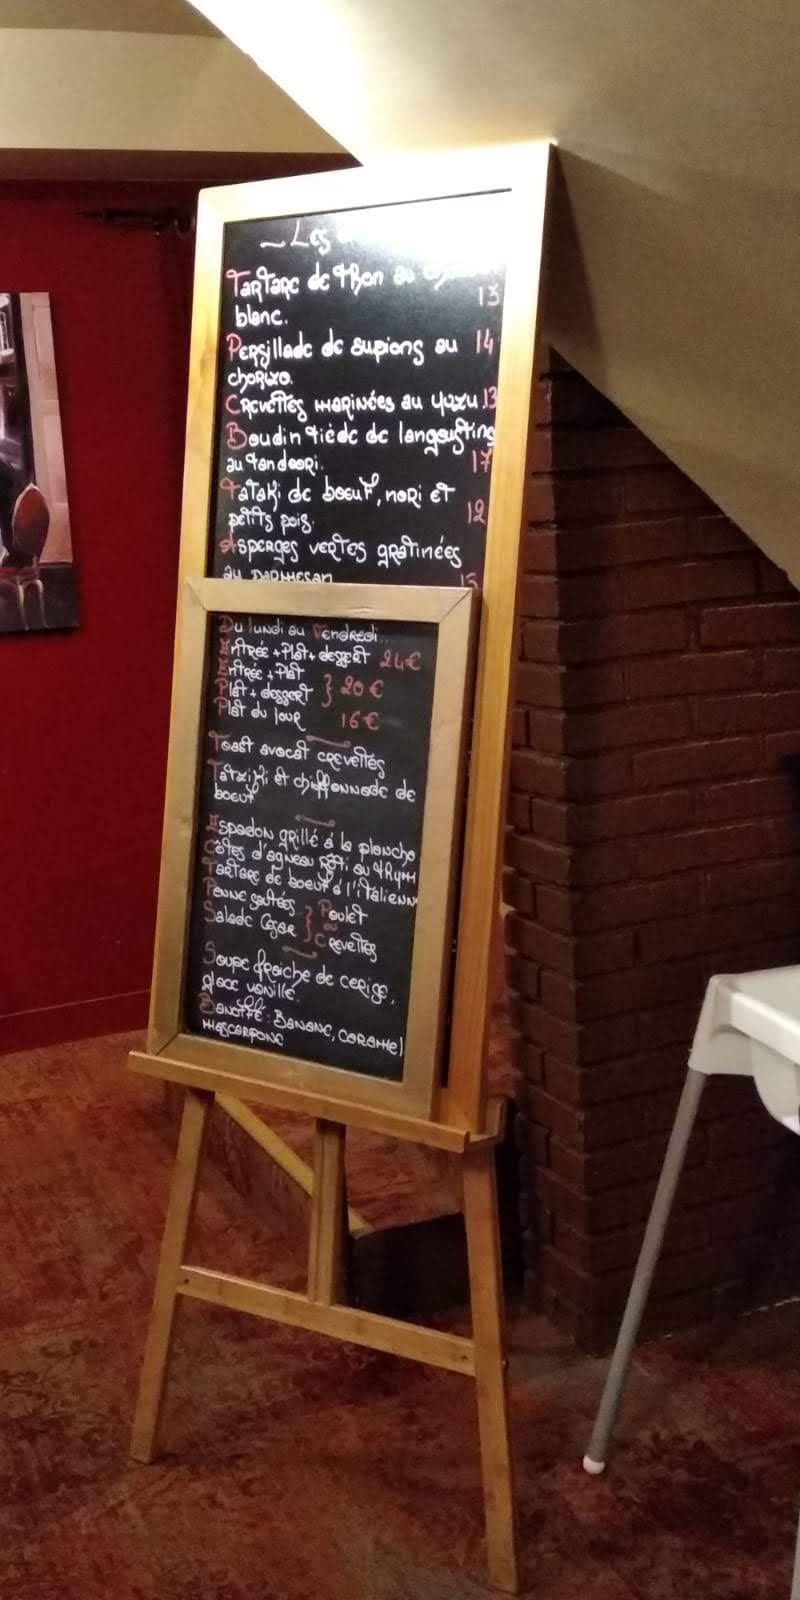 Les
Tartare de thon au
13
blanc.
Persillade de supions au 14
chorizo.
Crevettes marinées au yuzu 13
Boudin tiède de langoustine
au tandoori. 17
Tataki de boeuf, nori et
petits pois. 12
Asperges vertes gratinées
au parmesan 15
Du lundi au Vendredi...
Entrée + Plat + dessert 24€
Entrée + Plat
Plat + dessert } 20€
Plat du jour 16€
Toast avocat crevettes
Tatziki et chiffonnade de
boeuf
Espadon grillé à la plancha
Côtes d'agneau rôti au thym
Tartare de boeuf à l'italienn
Penne sautées } Poulet
Salade César ou
Crevettes
Soupe fraiche de cerise,
glace vanille.
Banoffe: Banane, caramel
mascarpone